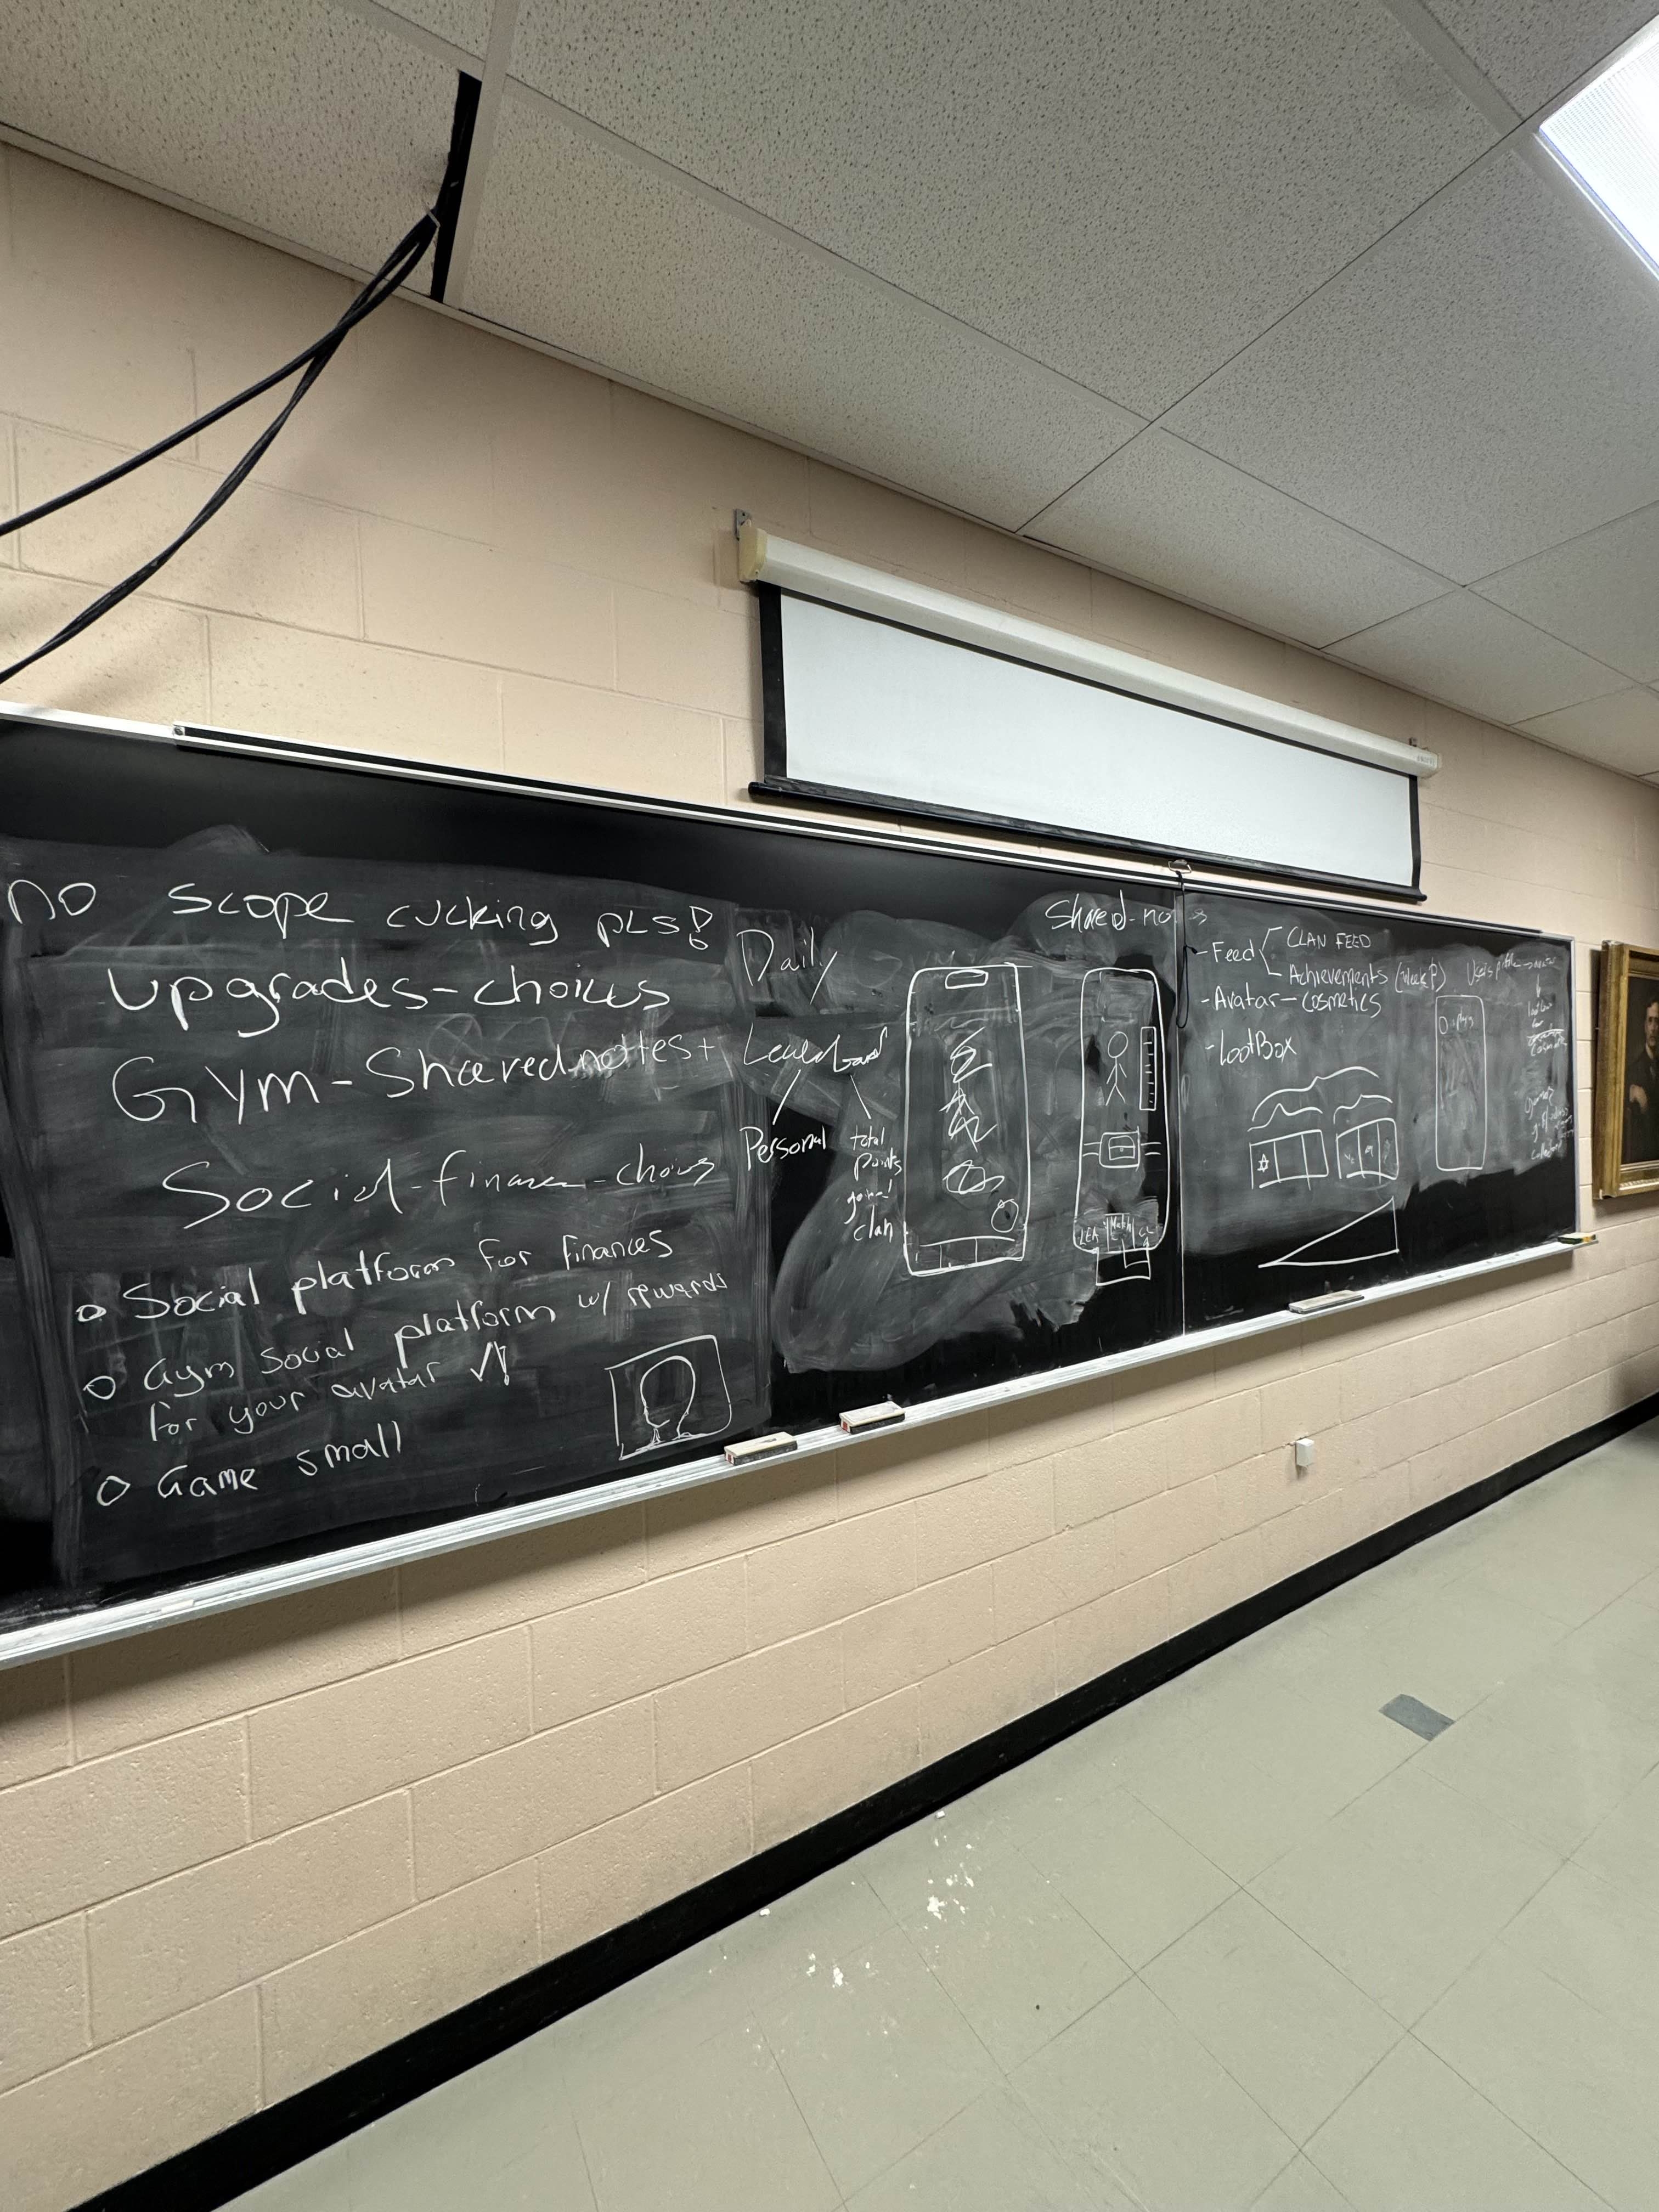 no scope cucking pls!
upgrades-choices
Gym-Sharednotes+
Social-finance-choices
o Social platform for finances
o Gym social platform w/ rewards
for your avatar
o Game small
Daily
Leaderboard
Personal
total
points
clan
Shared-no
LEA
Match
CL
-Feed
CLAN FEED
Achievements
-Avatar-Cosmetics
-LootBox